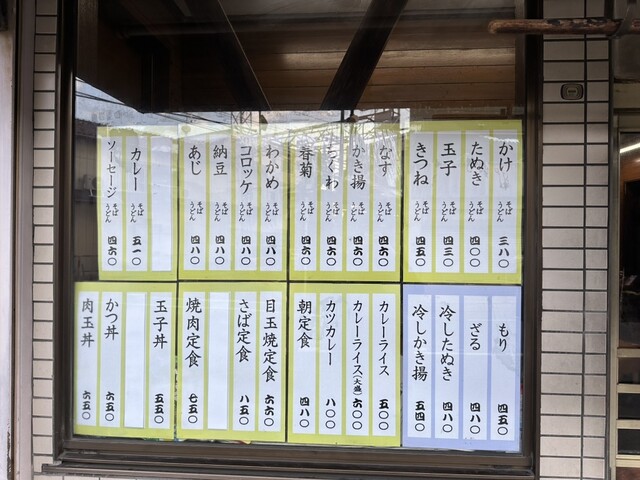 かけ そば うどん 三八〇
たぬき そば うどん 四〇〇
玉子 そば うどん 四三〇
きつね そば うどん 四五〇
なす そば うどん 四六〇
かき揚 そば うどん 四六〇
ちくわ そば うどん 四六〇
春菊 そば うどん 四六〇
わかめ そば うどん 四八〇
コロッケ そば うどん 四八〇
納豆 そば うどん 四八〇
あじ そば うどん 四八〇
カレー そば うどん 五一〇
ソーセージ そば うどん 四六〇
もり 四五〇
ざる 四八〇
冷したぬき 四八〇
冷しかき揚 五四〇
カレーライス 五〇〇
カレーライス(大盛) 六〇〇
カツカレー 八〇〇
朝定食 四八〇
目玉焼定食 六六〇
さば定食 八五〇
焼肉定食 七五〇
玉子丼 五五〇
かつ丼 六五〇
肉玉丼 六五〇